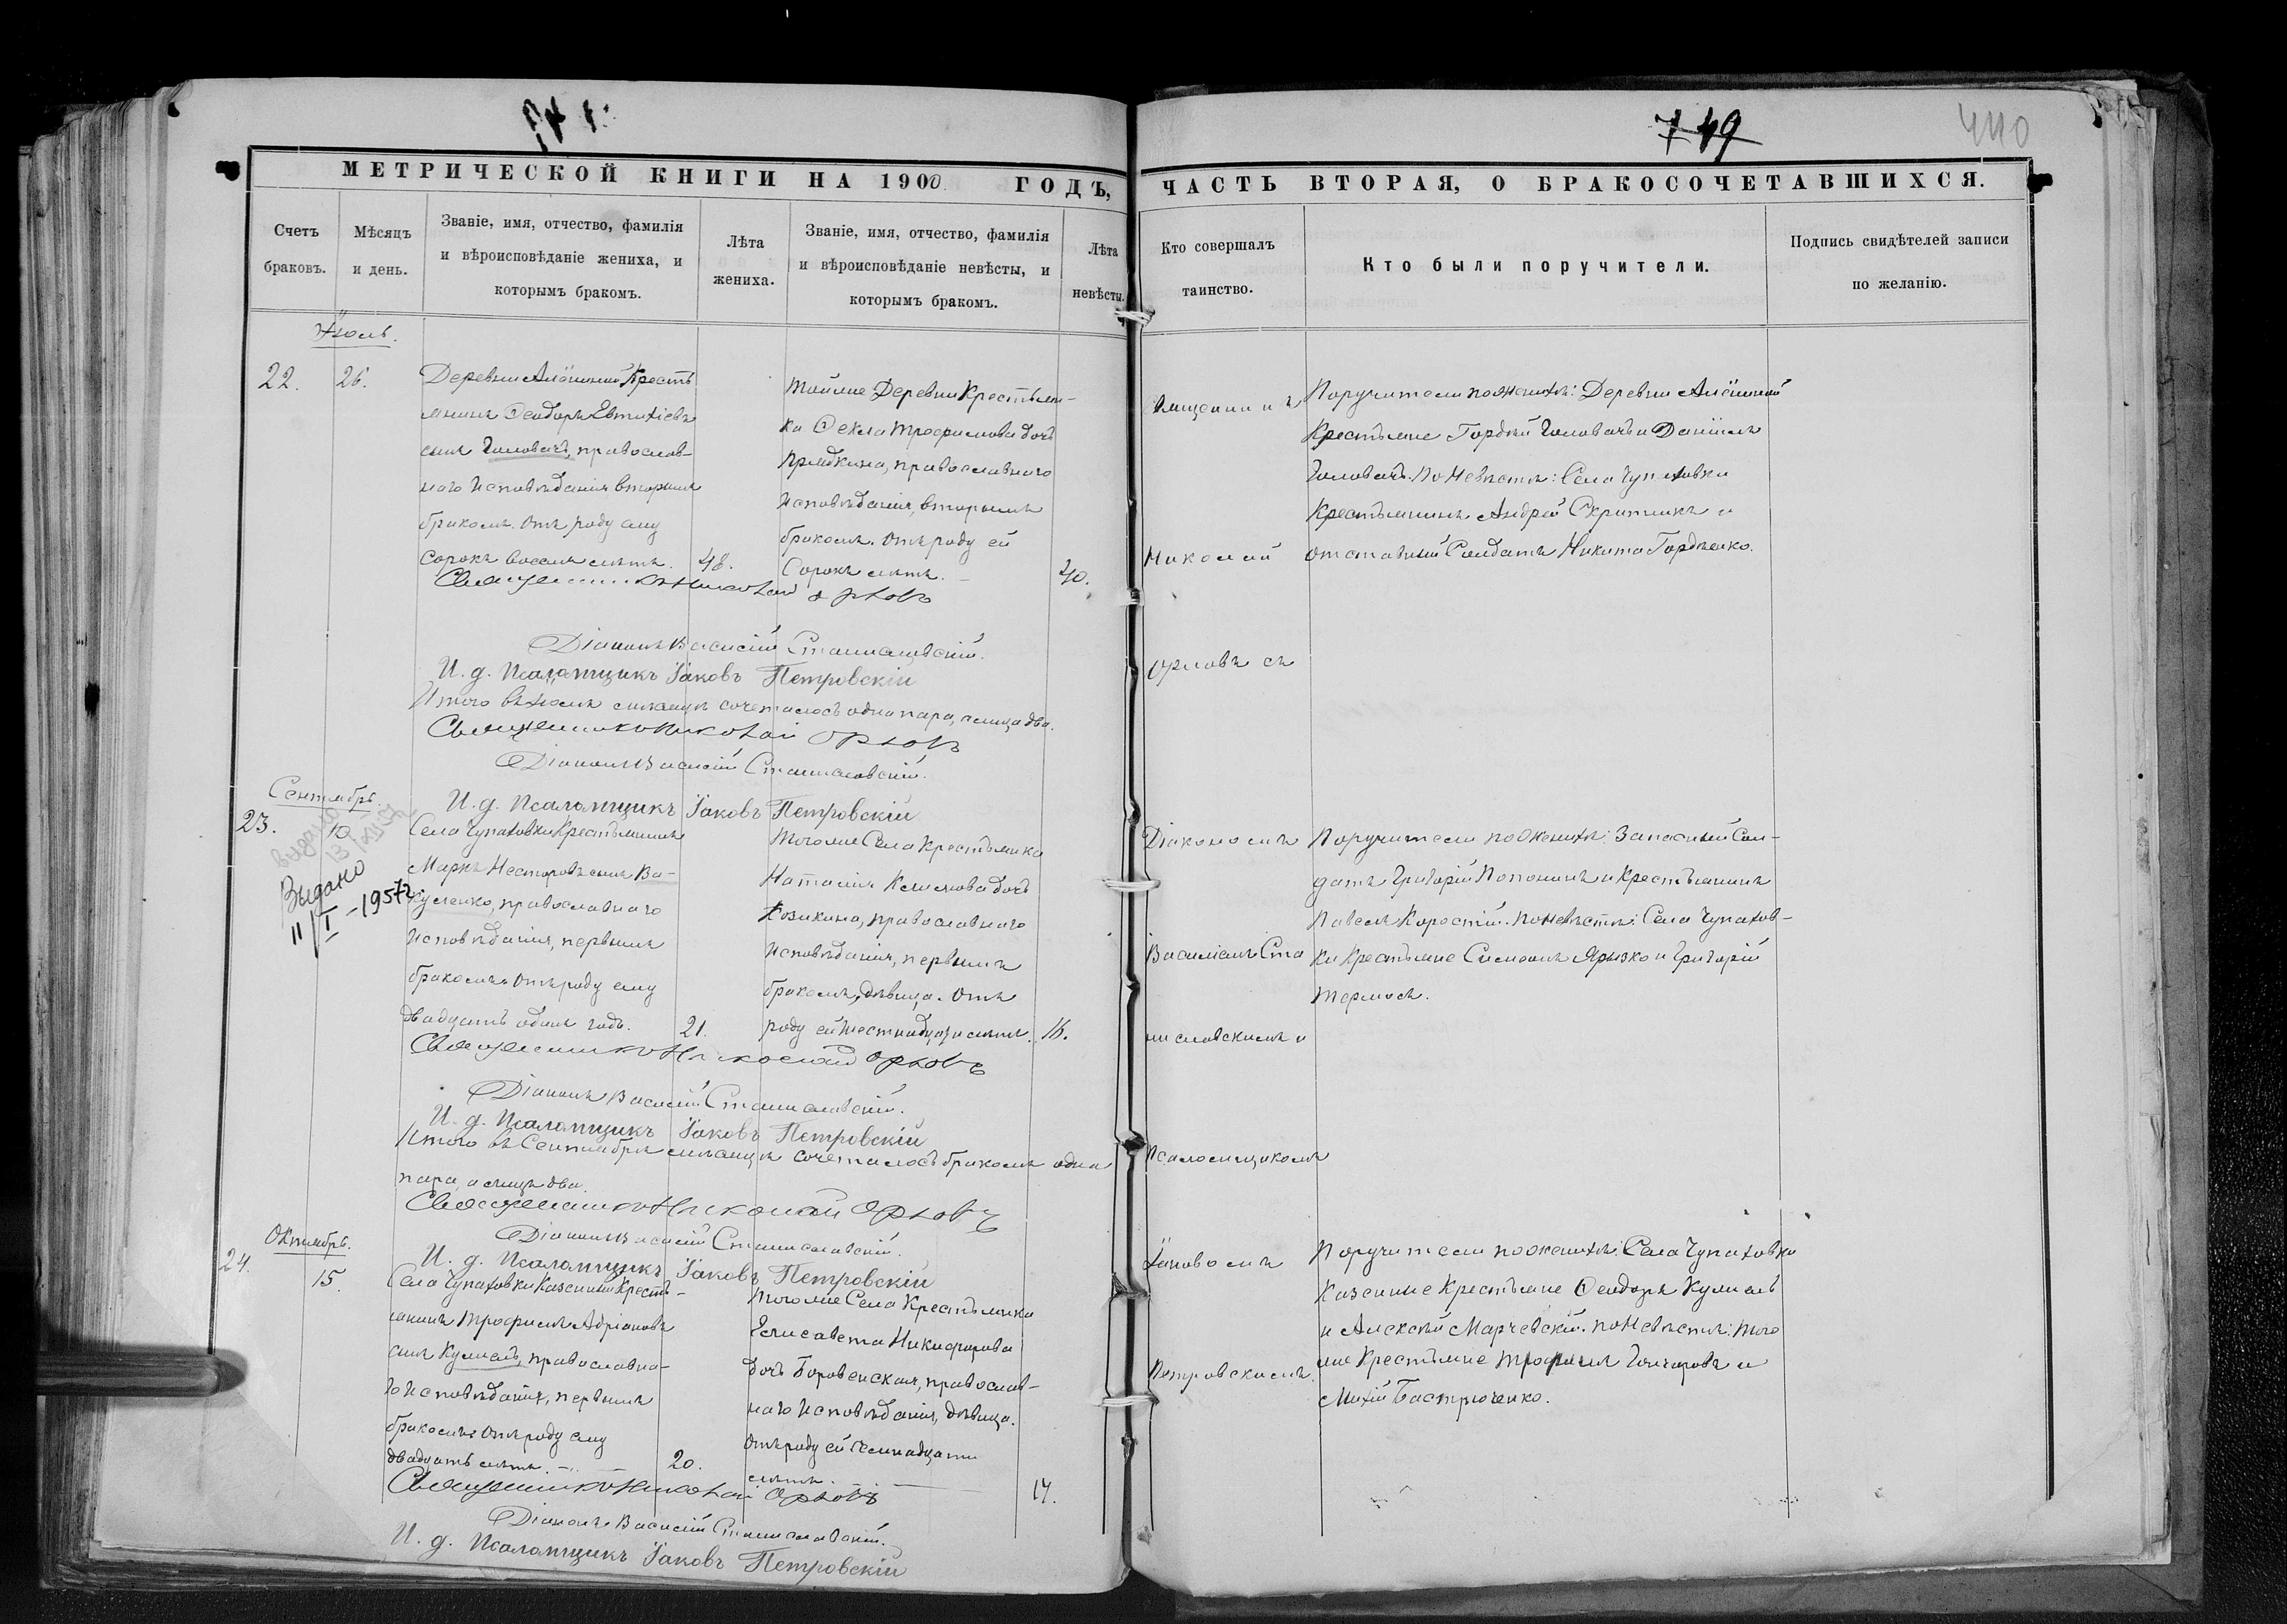 749
440
МЕТРИЧЕСКОЙ КНИГИ НА 1900 ГОДЪ, ЧАСТЬ ВТОРАЯ, О БРАКОСОЧЕТАВШИХСЯ.
Счетъ браковъ.
Мѣсяцъ и день.
Званіе, имя, отчество, фамилія и вѣроисповѣданіе жениха, и которымъ бракомъ.
Лѣта жениха.
Званіе, имя, отчество, фамилія и вѣроисповѣданіе невѣсты, и которымъ бракомъ.
Лѣта невѣсты.
Кто совершалъ таинство.
Кто были поручители.
Подпись свидѣтелей записи по желанію.
Іюль.
22. 26.
Деревни Алёшиной Кресть
янинъ Ѳеодоръ Евтихіевъ
сынъ Головачъ, православ-
наго исповѣданія вторымъ
бракомъ. Отъ роду ему
сорокъ восемь лѣтъ. 48.
Той же Деревни Крестьян-
ка Ѳекла Трофимова дочь
православнаго
исповѣданія, вторымъ
бракомъ. Отъ роду ей
сорокъ лѣтъ. 40.
Священникъ
Николай
Орловъ съ
Поручители по женихѣ: Деревни Алёшиной
Крестьяне Гордѣй Головачъ и Даніилъ
Головачъ. По невѣстѣ: Села Чупаховки
Крестьянинъ Андрей Скрипникъ и
отставный Солдатъ Никита Гордѣенко.
Священникъ Николай Орловъ
Діаконъ Василій Станиславскій.
И. д. Псаломщикъ Іаковъ Петровскій
Итого въ Іюлѣ мѣсяцѣ сочеталось одна пара, а лица два.
Священникъ Николай Орловъ
Діаконъ Василій Станиславскій.
И. д. Псаломщикъ Іаковъ Петровскій
Сентябрь.
23. 10
Выдано
11/I-1957г.
Села Чупаховки Крестьянинъ
Маркъ Несторовъ сынъ Ва-
куленко, православнаго
исповѣданія, первымъ
бракомъ. Отъ роду ему
двадцать одинъ годъ. 21.
Того же Села Крестьянка
Наталія Климова дочь
Козикина, православнаго
исповѣданія, первымъ
бракомъ, дѣвица. Отъ
роду ей шестнадцать лѣтъ. 16.
Діакономъ
Василіемъ Ста
ниславскимъ и
Псаломщикомъ
Іаковомъ
Петровскимъ.
Поручители по женихѣ: Запасный Сол-
датъ Григорій и Крестьянинъ
Павелъ Коростій. По невѣстѣ: Села Чупахов-
ки Крестьяне Симеонъ Ярызко и Григорій
Термоса.
Священникъ Николай Орловъ
Діаконъ Василій Станиславскій.
И. д. Псаломщикъ Іаковъ Петровскій
Итого въ Сентябрѣ мѣсяцѣ сочеталось бракомъ одна
пара, а лица два.
Священникъ Николай Орловъ
Діаконъ Василій Станиславскій.
И. д. Псаломщикъ Іаковъ Петровскій
Октябрь.
24. 15.
Села Чупаховки Казенный Кресть-
янинъ Трофимъ Адріановъ
сынъ Кулишъ, православна-
го исповѣданія, первымъ
бракомъ. Отъ роду ему
двадцать лѣтъ. 20.
Того же Села Крестьянка
Елисавета Никифорова
дочь Боровенская, православ-
наго исповѣданія, дѣвица.
Отъ роду ей семнадцать
лѣтъ. 17.
Поручители по женихѣ: Села Чупаховки
Казенные Крестьяне Ѳеодоръ Кулишъ
и Алексѣй Марчевскій. По невѣстѣ: Того
же Крестьяне Трофимъ Гончаровъ и
Михій Бастрюченко.
Священникъ Николай Орловъ
Діаконъ Василій Станиславскій.
И. д. Псаломщикъ Іаковъ Петровскій